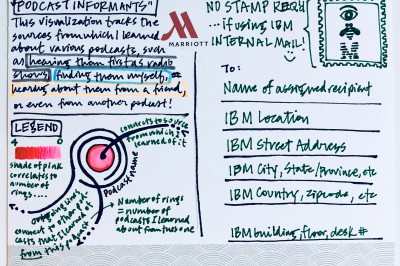 "PODCAST INFORMANTS"
This visualization tracks the
sources from which I learned
about various podcasts, such
as hearing them first as radio
shows, finding them myself, or
hearing about them from a friend,
or even from another podcast!
LEGEND
4 0
shade of pink
correlates to
number of
rings....
connects to source
from which I
learned of it
Podcast name
Number of rings
= number of
podcasts I learned
about from this one
outgoing lines
connect to other pod
casts that I learned of
from this podcast
MARRIOTT
NO STAMP REQ'D
...if using IBM
INTERNAL MAIL!
TO:
Name of assigned recipient
IBM Location
IBM Street Address
IBM City, State/Province, etc
IBM Country, zipcode, etc
IBM building, floor, desk #